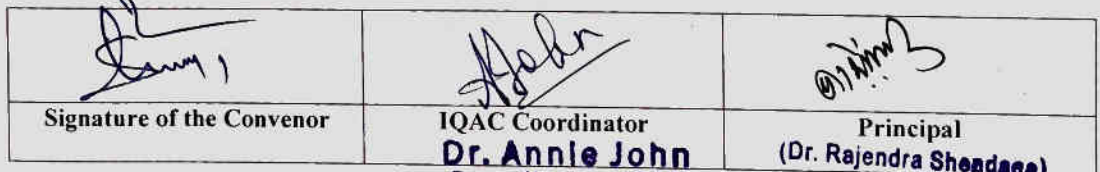 AJohn
Signature of the Convenor
IQAC Coordinator
Dr. Annie John
Principal
(Dr. Rajendra Shendage)